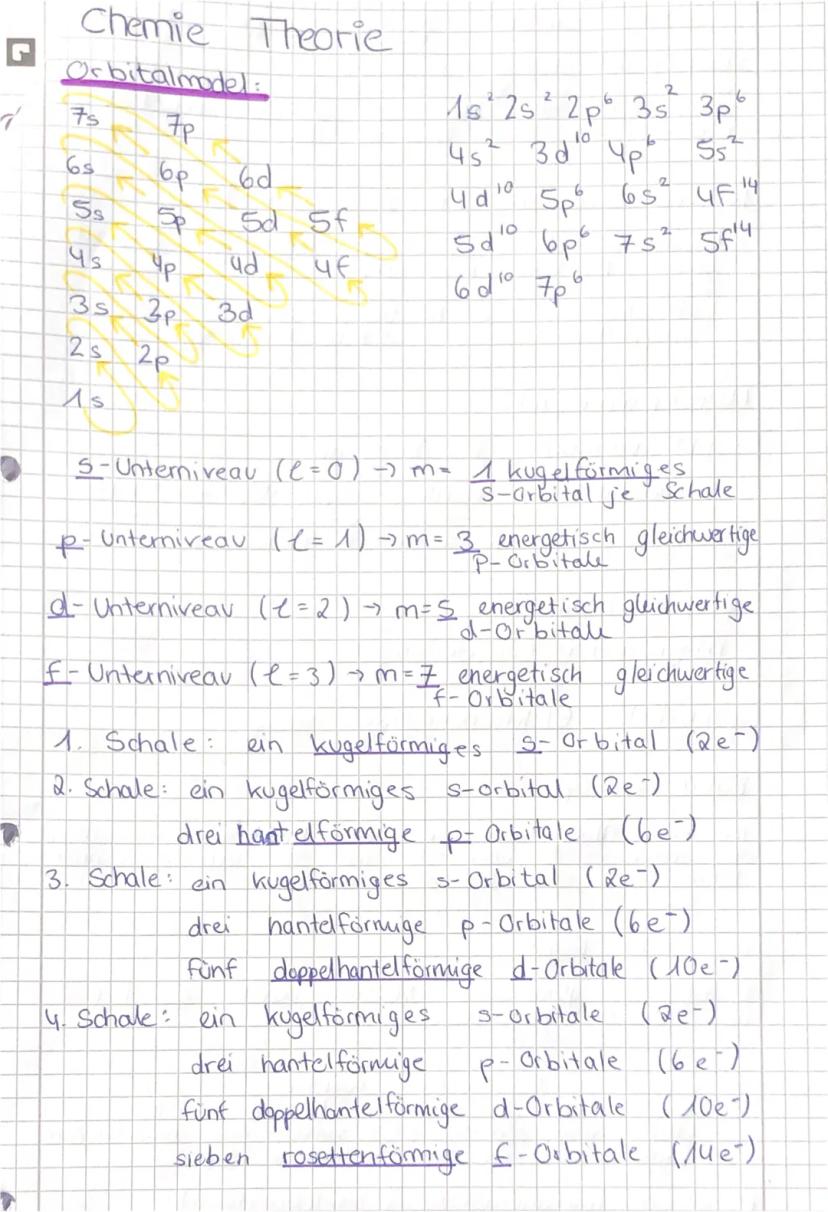 Chemie Theorie
Orbitalmodel:
7s 7p
6s 6p 6d
5s 5p 5d 5f
4s 4p 4d 4f
3s 3p 3d
2s 2p
1s
1s² 2s² 2p⁶ 3s² 3p⁶
4s² 3d¹⁰ 4p⁶ 5s²
4d¹⁰ 5p⁶ 6s² 4F¹⁴
5d¹⁰ 6p⁶ 7s² 5f¹⁴
6d¹⁰ 7p⁶
s-Unterniveau (l=0) → m= 1 kugelförmiges
s-orbital je Schale
p-Unterniveau (l=1) → m=3 energetisch gleichwertige
p-Orbitale
d-Unterniveau (l=2) → m=5 energetisch gleichwertige
d-Orbitale
f-Unterniveau (l=3) → m=7 energetisch gleichwertige
f-Orbitale
1. Schale: ein kugelförmiges s-Orbital (2e⁻)
2. Schale: ein kugelförmiges s-orbital (2e⁻)
drei hantelförmige p-Orbitale (6e⁻)
3. Schale: ein kugelförmiges s-Orbital (2e⁻)
drei hantelförmige p-Orbitale (6e⁻)
fünf doppelhantelförmige d-Orbitale (10e⁻)
4. Schale: ein kugelförmiges s-orbitale (2e⁻)
drei hantelförmige p-Orbitale (6e⁻)
fünf doppelhantelförmige d-Orbitale (10e⁻)
sieben rosettenförmige f-Orbitale (14e⁻)